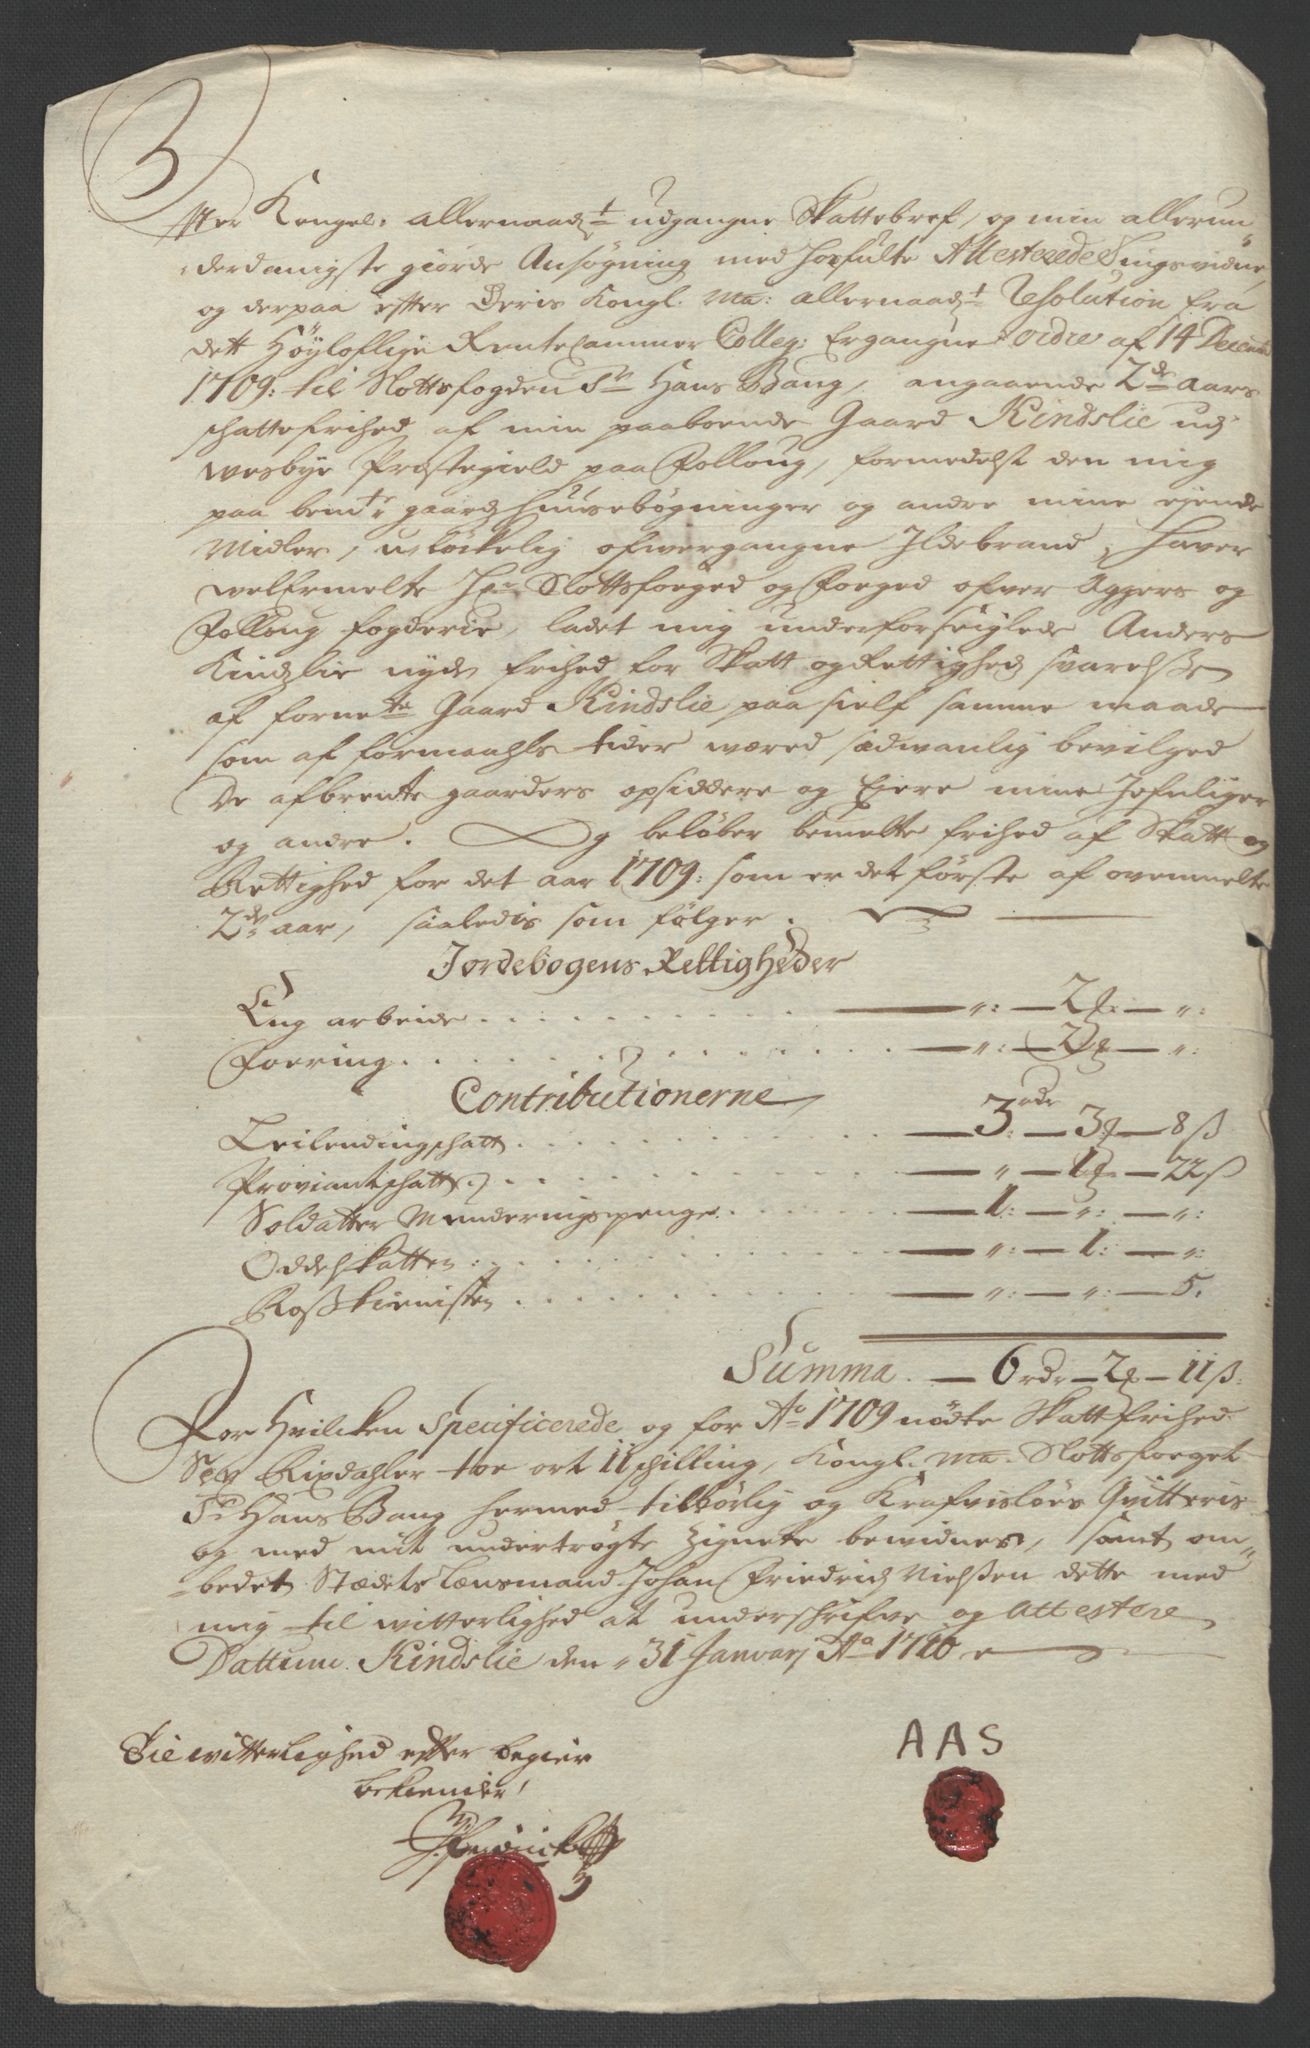 Efter Kongel: allernaadst udgangne Skattebref, og min allerun
derdanigste giorde Ansøgning med hosfulte Attesterede Tingsvidne,
og derpaa efter Deris Kongl. Ma: allernaadst Resolution fra
dett Höyloflige Rentecammer Colleg: Ergangne ordre af 14 Decemb
1709: til Slottsfogden Sr Hans Bang, angaaende 2de aars
schattefrihed af min paaboende Gaard Kindslie udj
Wesbye Præstegield paa Folloug, formedelst den mig
paa bemte gaards huusebøgninger og andre mine ejende
Midler, uløckelig ofwergangne Ildebrand, hawer
welermelte Hr Slottsforged og Forged ofwer Aggers og
Follong fogderie, ladet mig underforseiglede Anders
Kindslie nyde frihed for Skatt og Rettigheds svarelsse
af fornefnte Gaard Kindslie paa sielf samme maade
som af formaahls tider wæred sædwanlig bevilged
De afbrente gaarders opsiddere og Ejere mine Jefnliger
og andre. Og beløber bemelte frihed af Skatt og
Rettighed for det aar 1709: som er det første af ovenmelte
2de aar, saaledis som følger.
Jordebogens Rettigheder
Eng arbeide . . . . . . . „: — 2 ₰: — „:
Foering . . . . . . . „: — 2 ₰ — „:
Contributionerne
Leilendingschatt . . . . . . . 3 rdr: — 3 ₰ — 8 ß
Proviantschatt . . . . . . . „ — 1 ₰ — 22 ß
Soldatter Munderingspenge . . . . 1: — „: — „:
Oddelskatten . . . . . . . „: — 1: — „:
Rosstienisten . . . . . . . „: — „: — 5.
Summa. — 6 rdr — 2 ₰ — 11 ß:
For Hvilcken Specificerede og for Ao 1709 nødte Skattfrihed
Sex Rixdahler toe ort 11 schilling, Kongl. Ma. Slottsforget
Sr Hans Bang hermed tilbörlig og Krafvisløes Qvitteris
og med mit undertrøgte Zignete bewidnes, samt om
bedet Stædets Lænsmand Johan Friedrich Nielssen dette med
mig til witterlighed at underschrifve og Attestere
Dattum. Kindslie den 31 Januarj Ao 1710
Til witterlighed efter begier
bekiender
AAS